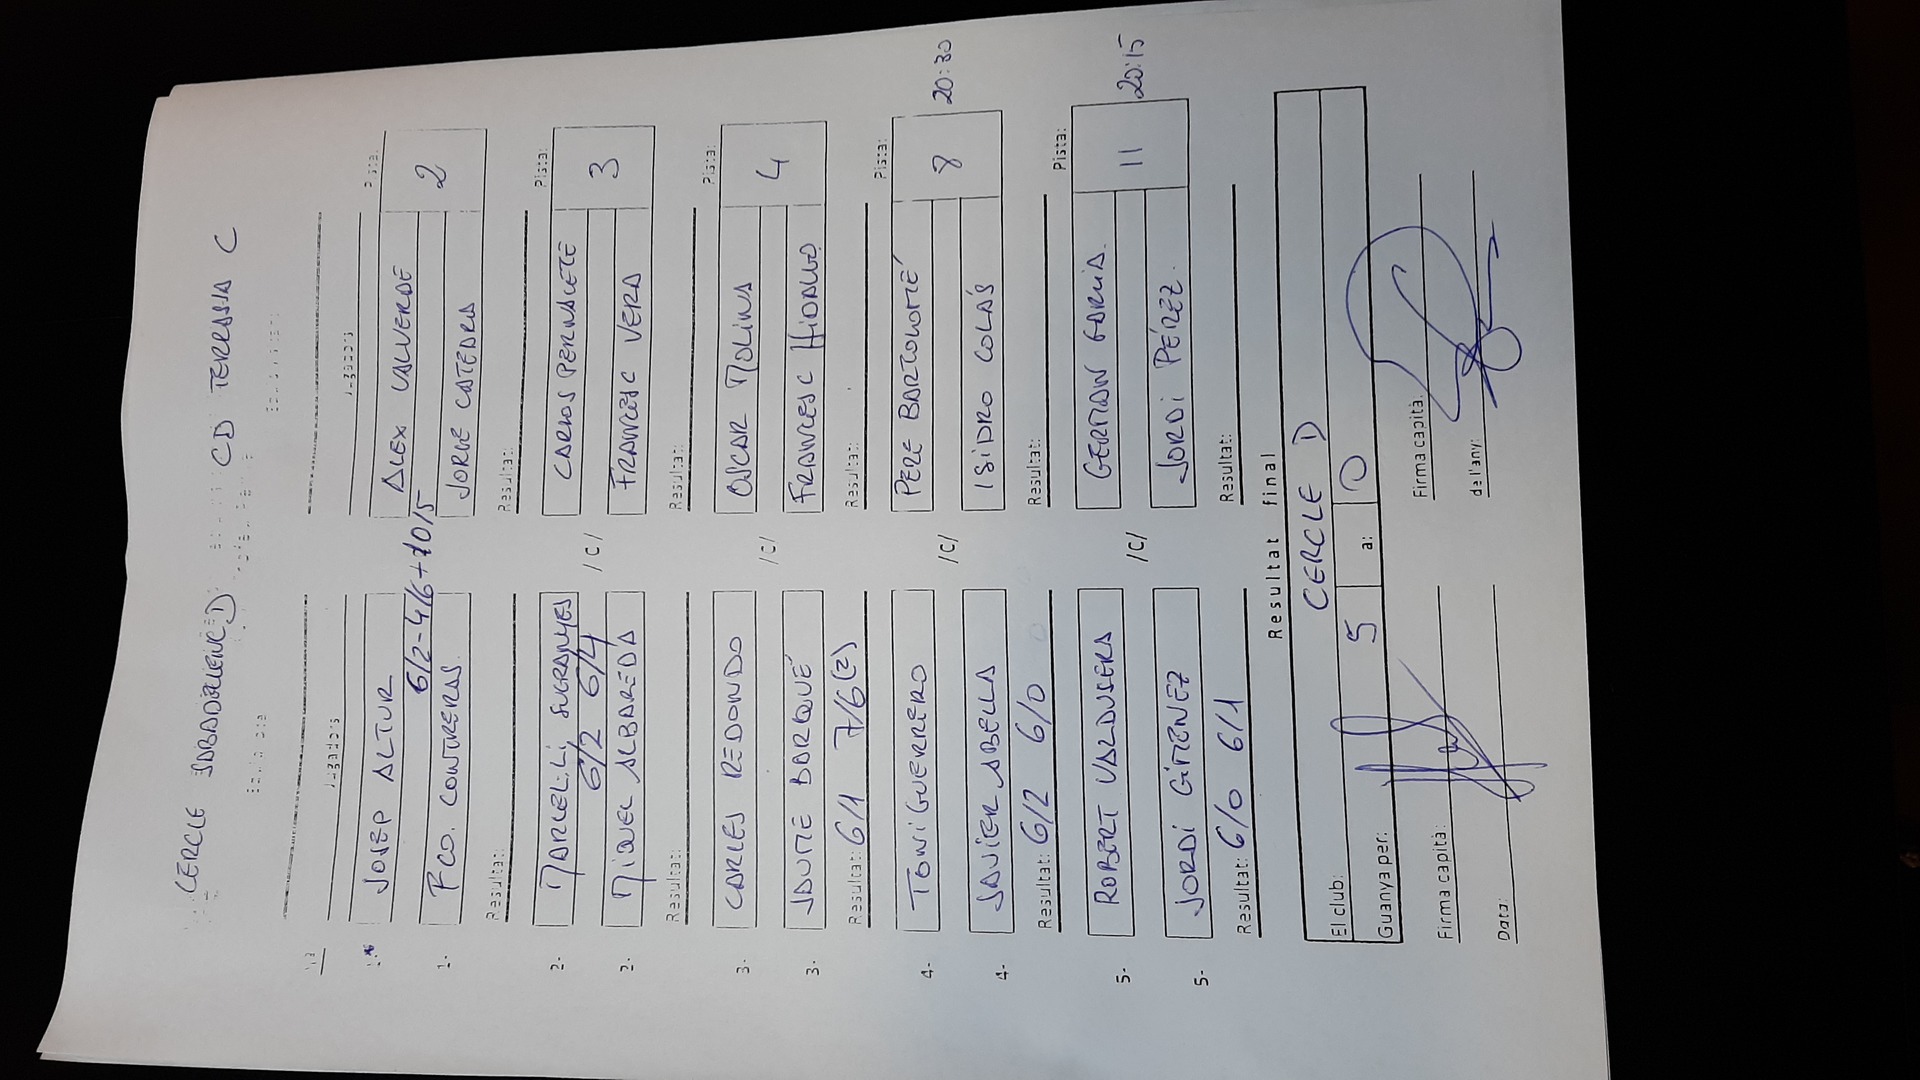 CERCLE SABADELLENC D
CD TERRASSA C
Jugadors
Jugadors
Pista:
1- JOSEP ALTUR
ALEX VALVERDE
2
6/2-4/6+10/5
1- FCO. CONTRERAS
JORGE CATEDRA
Resultat:
Resultat:
Pista:
2- MARCEL·LI SUGRANYES
CARLOS PERNALETE
3
6/2 6/4
/C/
2- MIQUEL ALBAREDA
FRANCESC VERA
Resultat:
Resultat:
Pista:
3- CARLES REDONDO
OSCAR MOLINA
4
/C/
3- JAUME BARQUÉ
FRANCESC HIDALGO
Resultat: 6/1 7/6(2)
Resultat:
Pista:
4- TONI GUERRERO
PERE BARTOLOMÉ
8
20:30
/C/
4- JAVIER ABELLA
ISIDRO COLÁS
Resultat: 6/2 6/0
Resultat:
Pista:
5- ROBERT VALLDUSERA
GERMAN GARCIA.
11
20:15
/C/
5- JORDI GIMENEZ
JORDI PÉREZ.
Resultat: 6/0 6/1
Resultat:
Resultat final
El club: CERCLE D
Guanya per: 5 a: 0
Firma capità:
Firma capità:
Data:
de l'any: